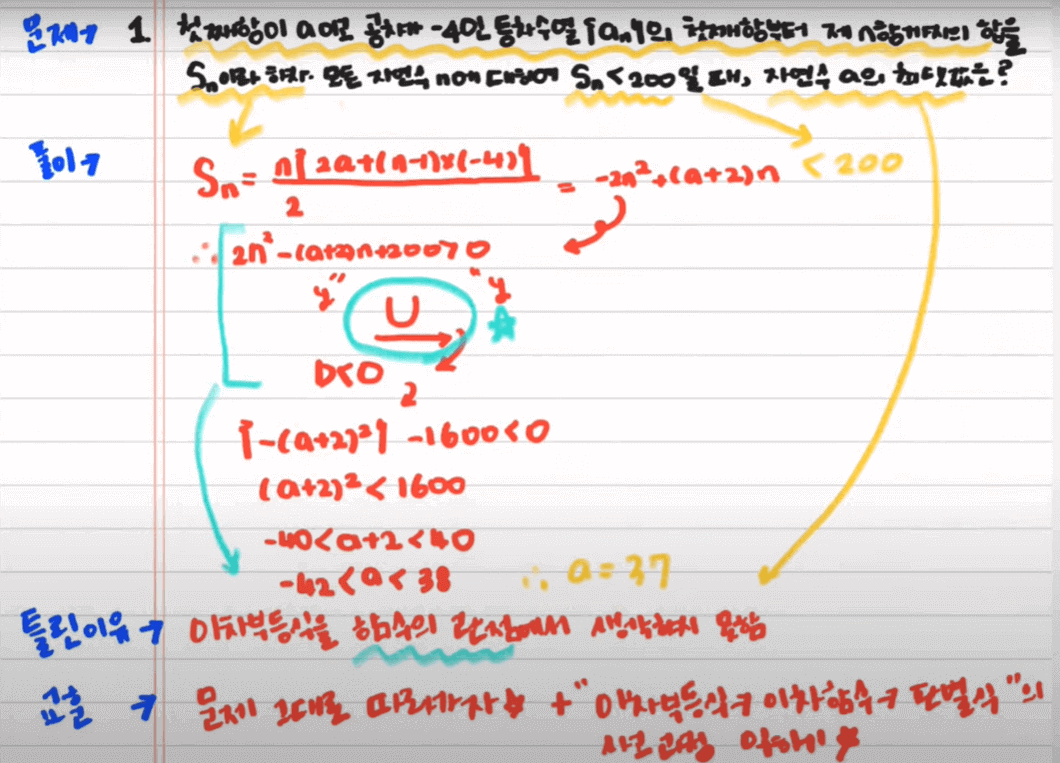 문제→ 1. 첫째항이 a이고 공차가 -4인 등차수열 {aₙ}의 첫째항부터 제 n항까지의 합을
Sₙ이라 하자. 모든 자연수 n에 대하여 Sₙ < 200일 때, 자연수 a의 최댓값은?
풀이→ Sₙ = n{2a+(n-1)×(-4)} / 2 = -2n²+(a+2)n < 200
∴ 2n²-(a+2)n+200>0
y" "y
U
D<0
{-(a+2)²} -1600<0
2
(a+2)² < 1600
-40<a+2<40
-42<a<38 ∴ a=37
틀린이유→ 이차부등식을 함수의 관점에서 생각하지 못함
교훈 → 문제 그대로 따라가자 + "이차부등식→이차함수→판별식"의
사고과정 익히기